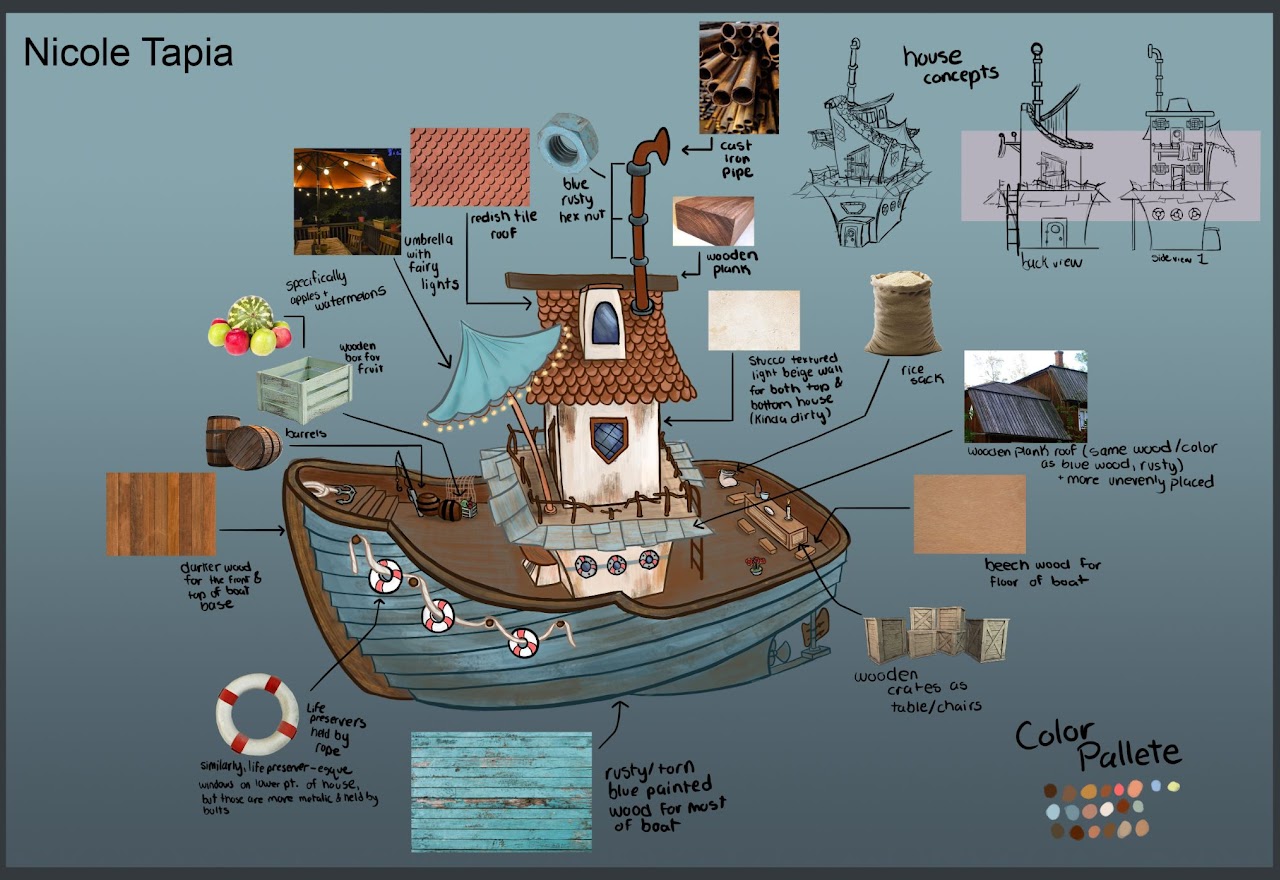 Nicole Tapia
house
concepts
cast
iron
pipe
blue
rusty
hex nut
redish tile
roof
umbrella
with
fairy
lights
wooden
plank
back view
side view 1
specifically
apples +
watermelons
wooden
box for
fruit
barrels
Stucco textured
light beige wall
for both top &
bottom house
(kinda dirty)
rice
sack
wooden plank roof (same wood/color
as blue wood, rusty)
+ more unevenly placed
darker wood
for the front &
top of boat
base
beech wood for
floor of boat
wooden
crates as
table/chairs
life
preservers
held by
rope
similarly, life preserver-esque
windows on lower pt. of house,
but those are more metalic & held by
bolts
rusty/torn
blue painted
wood for most
of boat
Color
Pallete